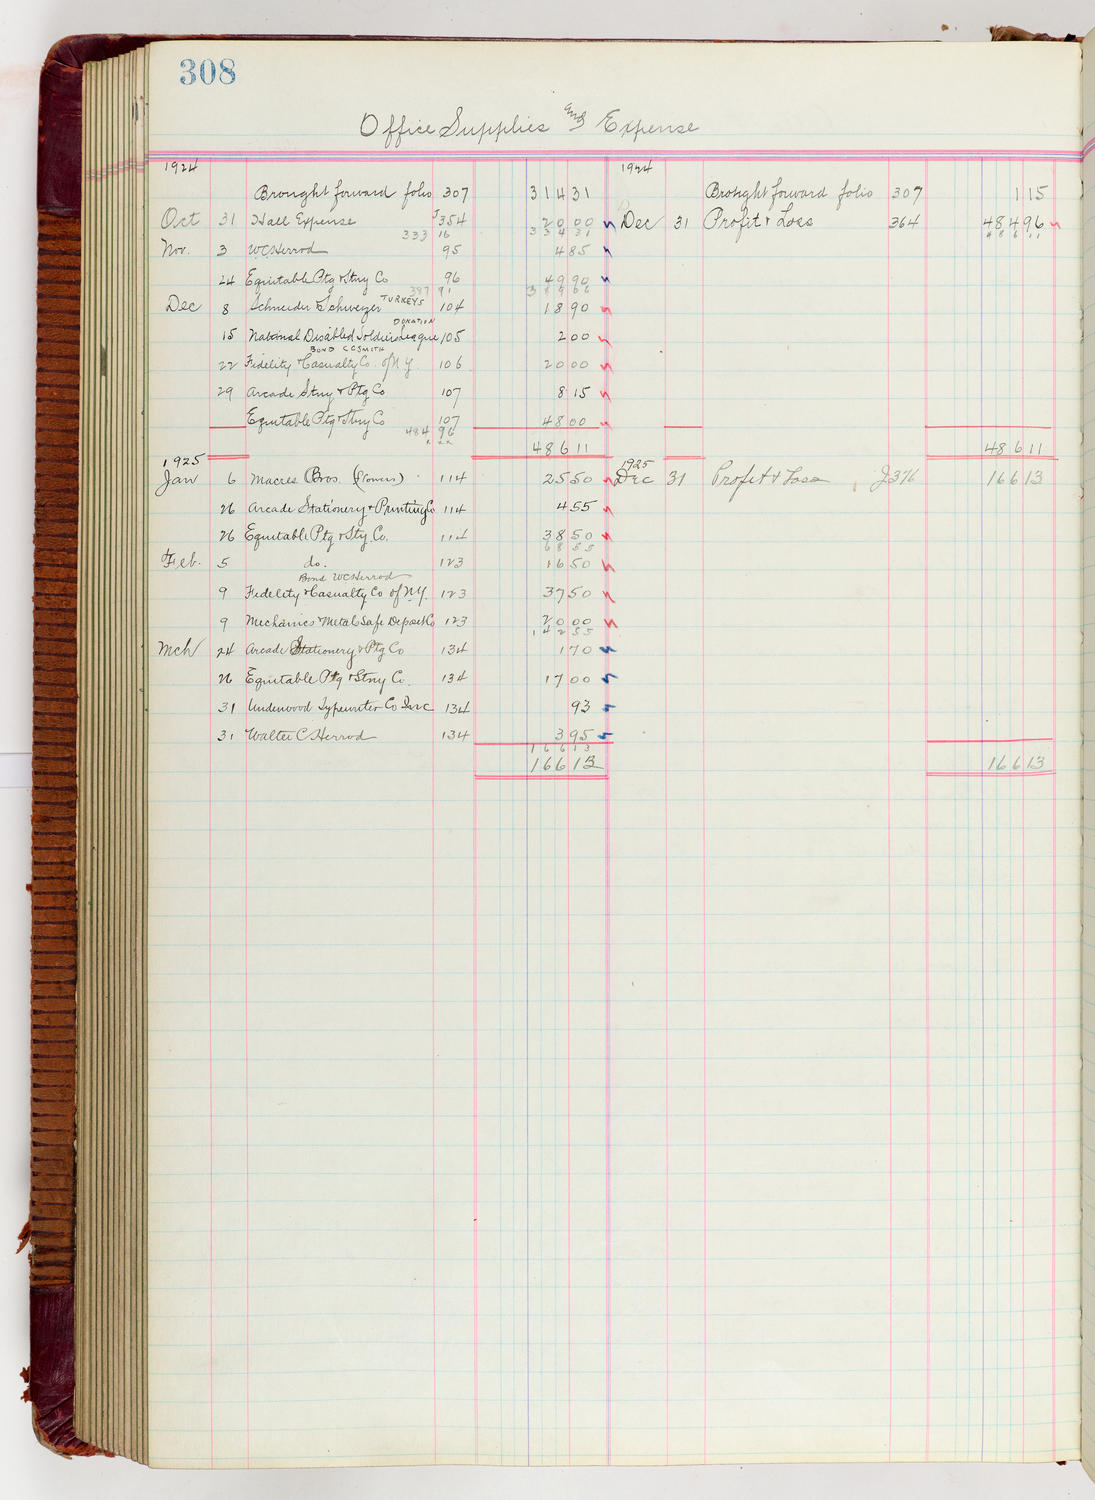 308
Office Supplies and Expense
1924 1924
Brought forward folio 307 314 31 Brought forward folio 307 1 15
Oct 31 Hall Expense J354 20 00 Dec 31 Profit & Loss 364 484 96
333 16 334 31 486 11
Nov. 3 W C Herrod 95 4 85
24 Equitable Ptg & Stny Co 96 49 90
387 91 389 06
TURKEYS
Dec 8 Schneider & Schweizer 104 18 90
DONATION
15 National Disabled Soldiers League 105 2 00
BOND C C SMITH
22 Fidelity & Casualty Co. of N Y 106 20 00
29 Arcade Stny & Ptg Co 107 8 15
Equitable Ptg & Stny Co 107 48 00
484 96
486 11 486 11
1925 1925
Jan 6 Macres Bros. (Flowers) 114 25 50 Dec 31 Profit & Loss J376 166 13
26 Arcade Stationery & Printing Co 114 4 55
26 Equitable Ptg & Sty. Co. 114 38 50
68 55
Feb. 5 do. 123 16 50
Bond W C Herrod
9 Fidelity & Casualty Co of N.Y. 123 37 50
9 Mechanics & Metal Safe Deposit Co 123 20 00
142 55
Mch 24 Arcade Stationery & Ptg Co 134 1 70
26 Equitable Ptg & Stny Co. 134 17 00
31 Underwood Typewriter Co Inc 134 93
31 Walter C Herrod 134 3 95
166 13
166 13 166 13